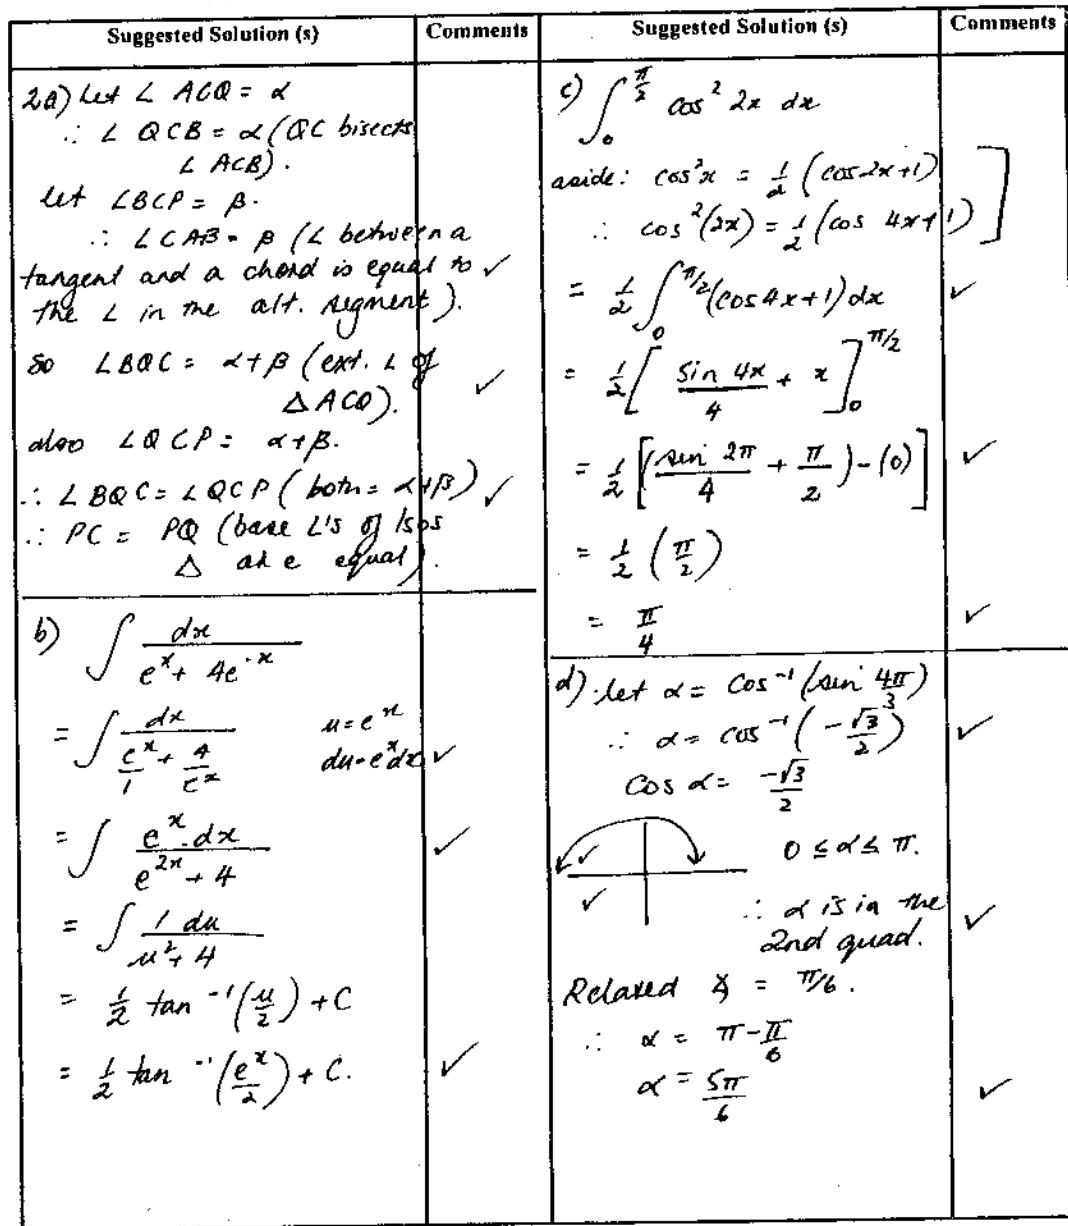 Suggested Solution (s)
Comments
2a) Let ∠ ACQ = α
∴ ∠ QCB = α (QC bisects
∠ ACB).
let ∠BCP = β.
∴ ∠CAB = β (∠ between a
tangent and a chord is equal to ✓
the ∠ in the alt. segment).
So ∠BQC = α+β (ext. ∠ of
△ ACQ). ✓
also ∠QCP = α+β.
∴ ∠BQC = ∠QCP (both = α+β) ✓
∴ PC = PQ (base ∠'s of Isos
△ are equal).
b) ∫ dx / (e^x + 4e^-x)
= ∫ dx / (e^x/1 + 4/e^x) u = e^x
du = e^x dx ✓
= ∫ e^x.dx / (e^2x + 4) ✓
= ∫ 1 du / (u² + 4)
= 1/2 tan⁻¹(u/2) + C
= 1/2 tan⁻¹(e^x/2) + C. ✓
Suggested Solution (s)
Comments
c) ∫₀^(π/2) cos² 2x dx
aside: cos²x = 1/2 (cos 2x+1)
∴ cos²(2x) = 1/2 (cos 4x+1) ]
= 1/2 ∫₀^(π/2) (cos4x+1) dx ✓
= 1/2 [ sin 4x / 4 + x ]₀^(π/2)
= 1/2 [(sin 2π / 4 + π/2) - (0)] ✓
= 1/2 (π/2)
= π/4 ✓
d) let α = Cos⁻¹(sin 4π/3)
∴ α = cos⁻¹(-√3/2) ✓
Cos α = -√3/2
0 ≤ α ≤ π.
✓
✓
∴ α is in the
2nd quad. ✓
Related ∡ = π/6.
∴ α = π - π/6
α = 5π/6 ✓